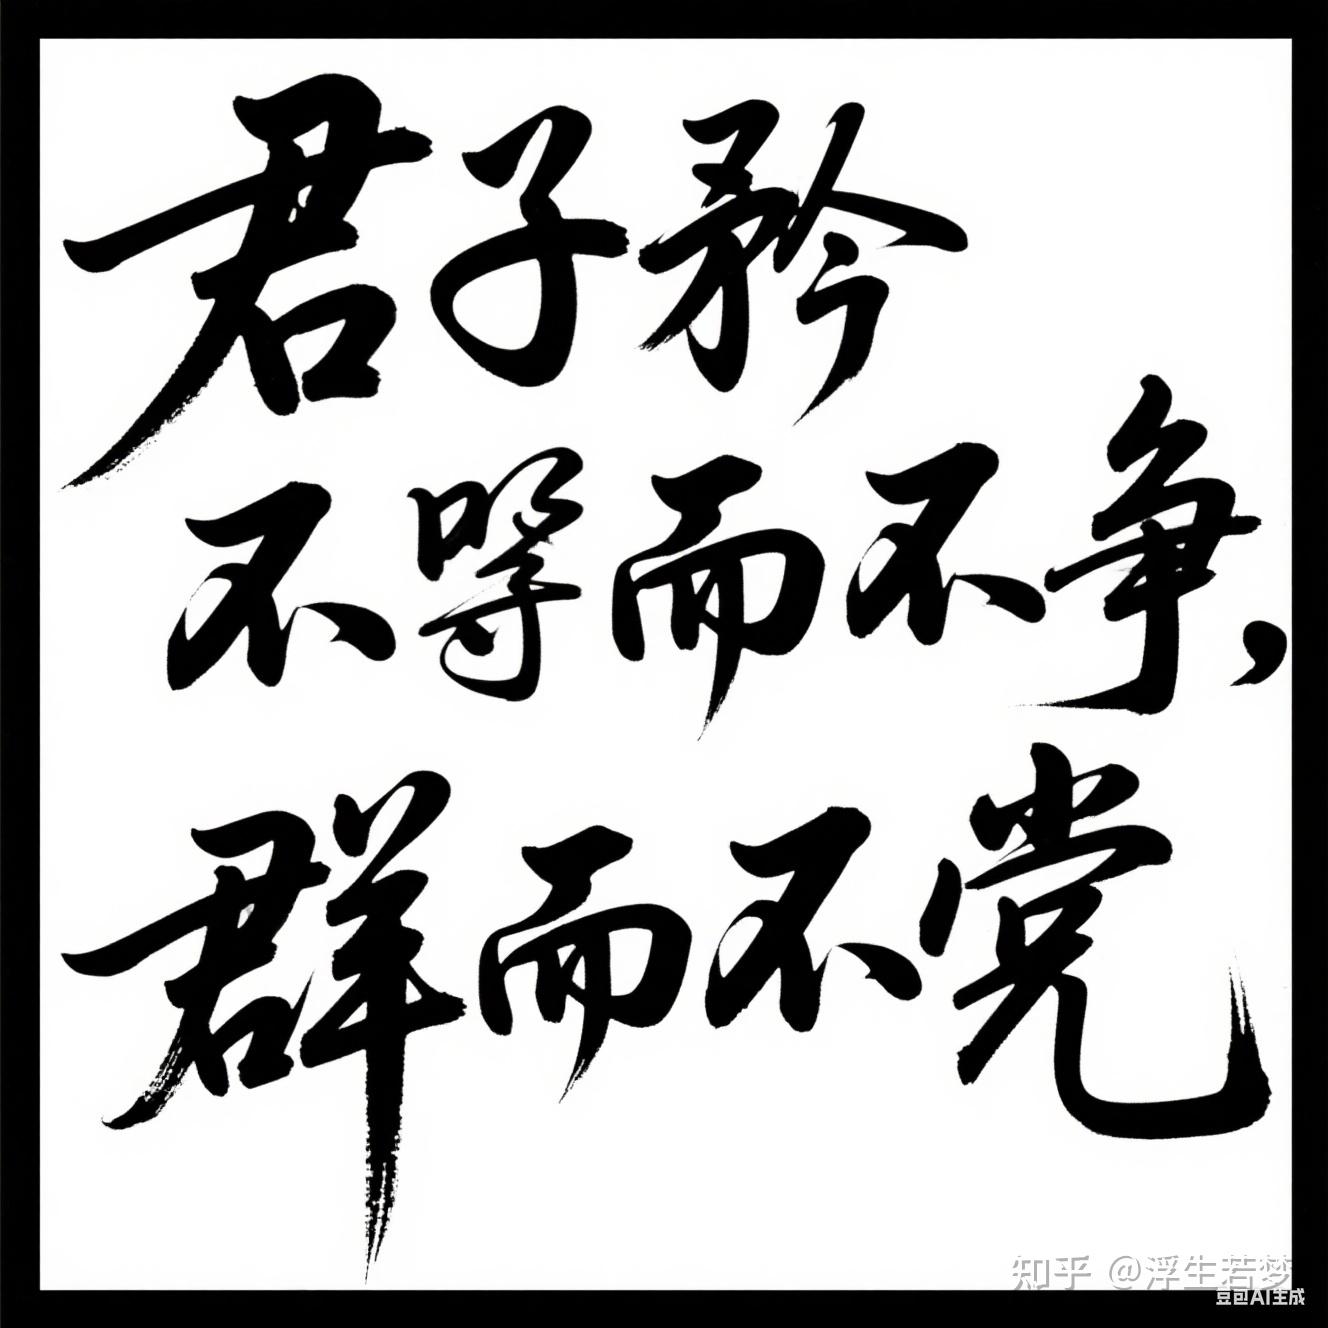 君子矜
不而不争，
群而不党
知乎 @浮生若梦
豆包AI生成